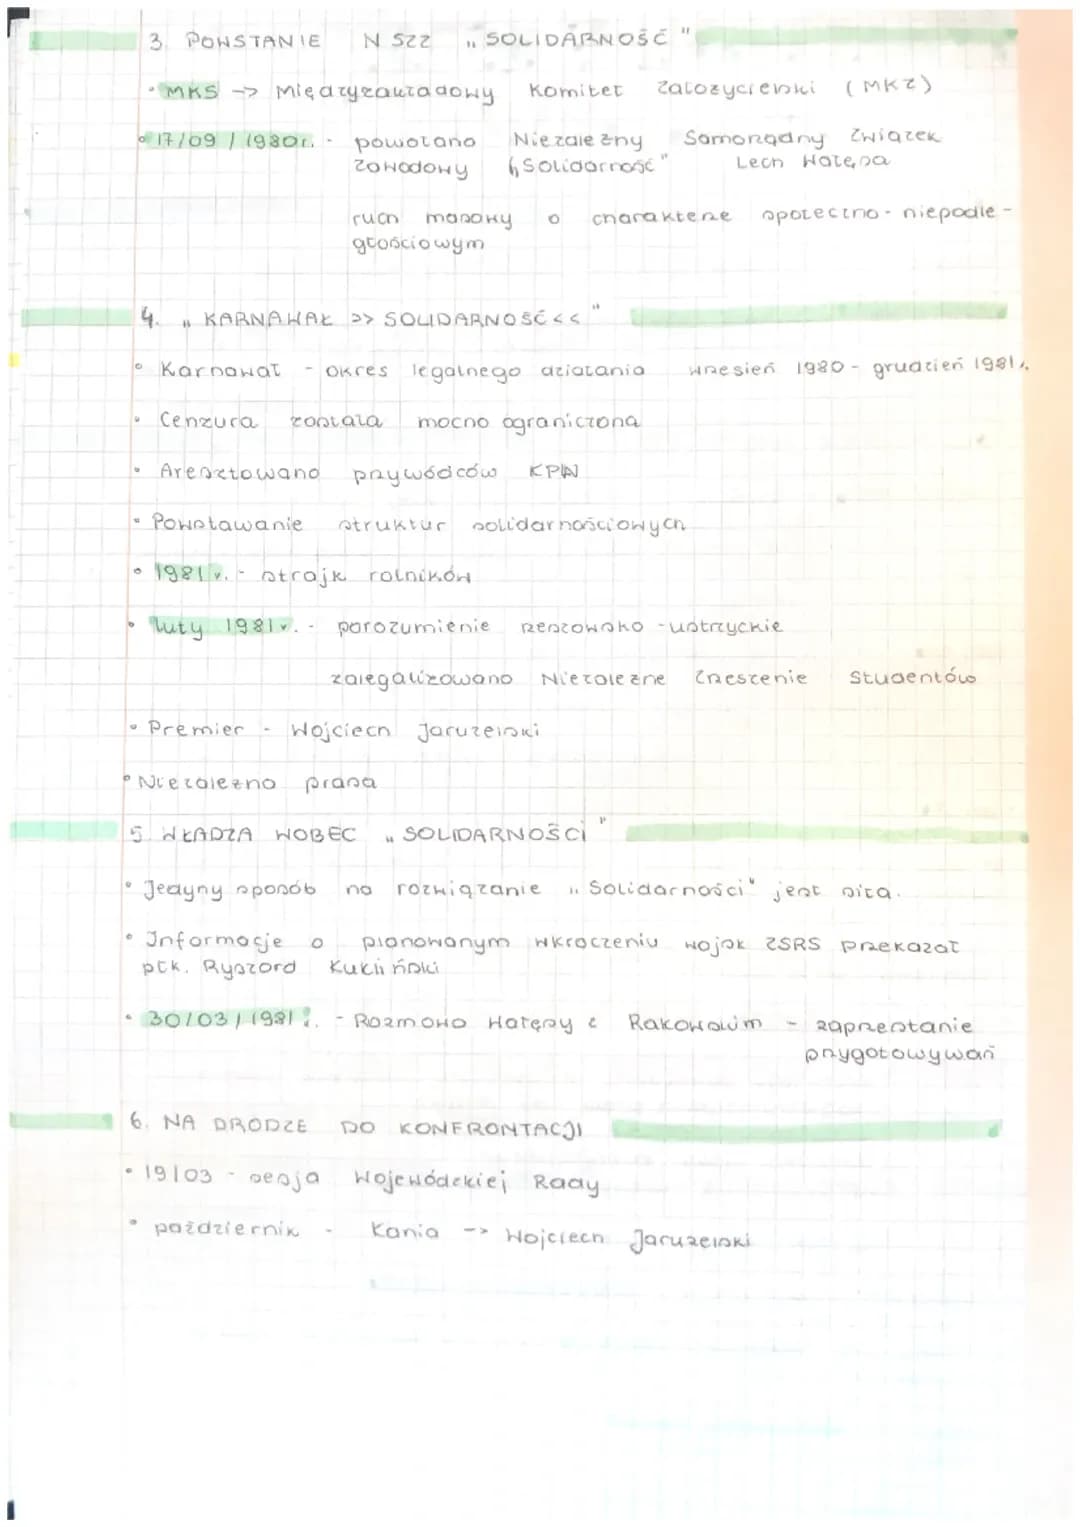 3. POWSTANIE NSZZ „SOLIDARNOŚĆ"
• MKS -> Międzyzakładowy Komitet Założycielski (MKZ)
• 17/09/1980r. - powołano Niezależny Samorządny Związek
Zawodowy „Solidarność" Lech Wałęsa
ruch masowy o charakterze społeczno-niepodle-
głościowym
4. „KARNAWAŁ >> SOLIDARNOŚĆ <<"
• Karnawał - okres legalnego działania wrzesień 1980 - grudzień 1981r.
• Cenzura została mocno ograniczona
• Aresztowano przywódców KPN
• Powstawanie struktur solidarnościowych
• 1981r. - strajk rolników
• luty 1981r. - porozumienie rzeszowsko-ustrzyckie
zalegalizowano Niezależne Zrzeszenie Studentów
• Premier - Wojciech Jaruzelski
• Niezależna prasa
5. WŁADZA WOBEC „SOLIDARNOŚCI"
• Jedyny sposób na rozwiązanie „Solidarności" jest siła.
• Informacje o planowanym wkroczeniu wojsk ZSRS przekazał
płk. Ryszard Kukliński
• 30/03/1981r. - Rozmowa Wałęsy z Rakowskim - zaprzestanie
przygotowywań
6. NA DRODZE DO KONFRONTACJI
• 19/03 - sesja Wojewódzkiej Rady
• październik - Kania -> Wojciech Jaruzelski